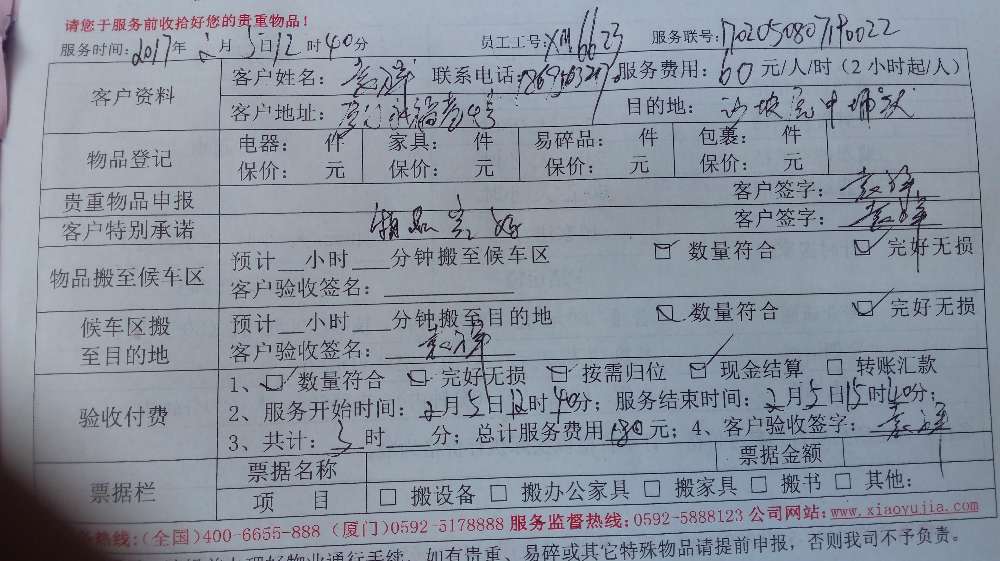 请您于服务前收拾好您的贵重物品!
服务时间:2017年2月5日12时40分 员工工号:XM6623 服务联号:
客户资料 客户姓名: 联系电话: 服务费用:60元/人/时(2小时起/人)
客户地址: 目的地:
物品登记 电器: 件 家具: 件 易碎品: 件 包裹: 件
保价: 元 保价: 元 保价: 元 保价: 元
贵重物品申报 客户签字:
客户特别承诺 客户签字:
物品搬至候车区 预计__小时___分钟搬至候车区 数量符合 完好无损
客户验收签名:
候车区搬至目的地 预计__小时___分钟搬至目的地 数量符合 完好无损
客户验收签名:
验收付费 1、数量符合 完好无损 按需归位 现金结算 □ 转账汇款
2、服务开始时间:2月5日12时40分;服务结束时间:2月5日15时40分;
3、共计:3时___分;总计服务费用180元;4、客户验收签字:
票据栏 票据名称 票据金额
项 目 □ 搬设备 □ 搬办公家具 □ 搬家具 □ 搬书 □ 其他:
热线:(全国)400-6655-888 (厦门)0592-5178888 服务监督热线:0592-5888123 公司网站:www.xiaoyujia.com
理好物业通行手续,如有贵重、易碎或其它特殊物品请提前申报,否则我司不予负责。